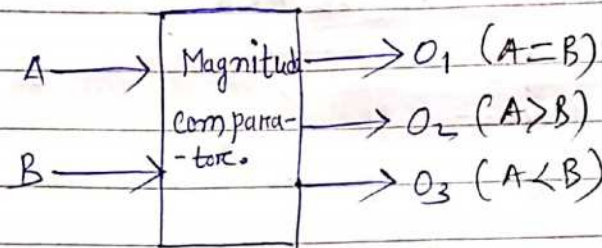 A
B
Magnitud
compara-
-tor.
O₁ (A=B)
O₂ (A>B)
O₃ (A<B)